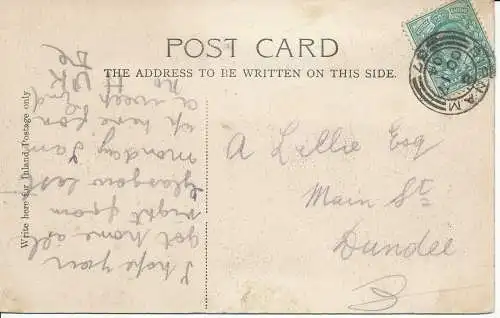 POST CARD
THE ADDRESS TO BE WRITTEN ON THIS SIDE.
Write here for Inland Postage only
I hope you
got home all
right from
Glasgow last
monday I am
up here for
a week 2nd
A Lillie Esq
Main St
Dundee